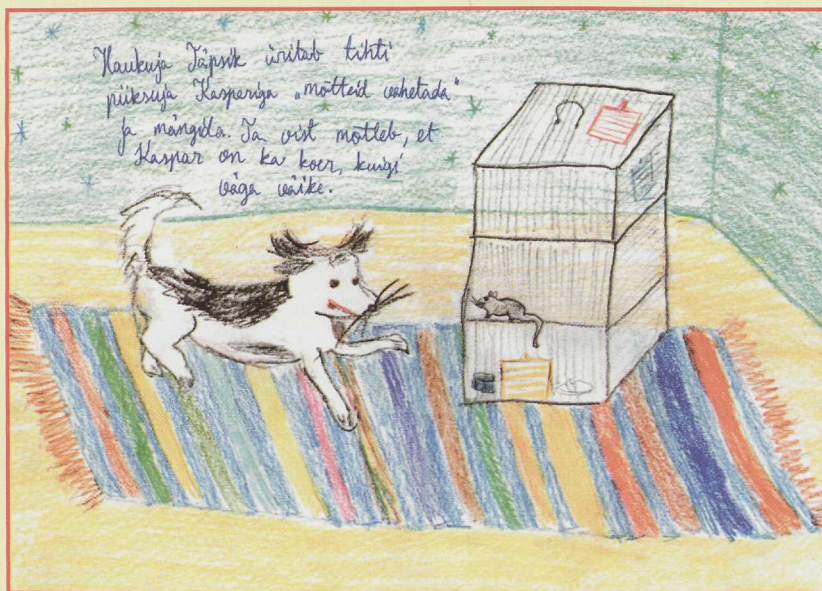 Haukuja Täpsik üritab tihti
piiksuja Kaspariga „mõtteid vahetada“
ja mängida. Ta vist mõtleb, et
Kaspar on ka koer, kuigi
väga väike.